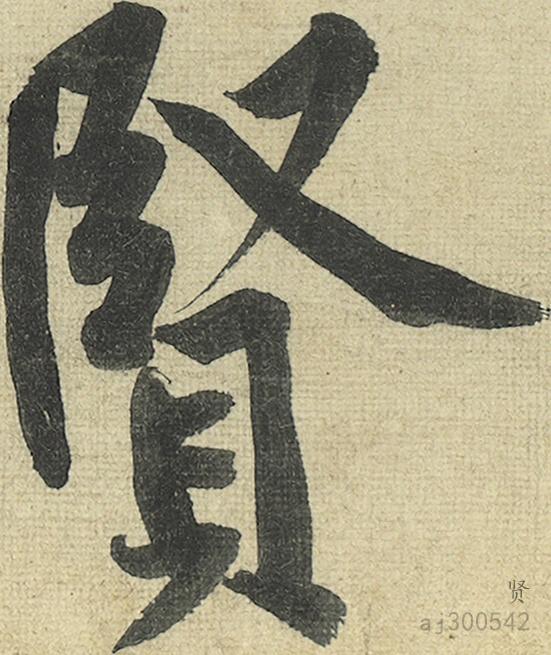 賢
贤
aj300542